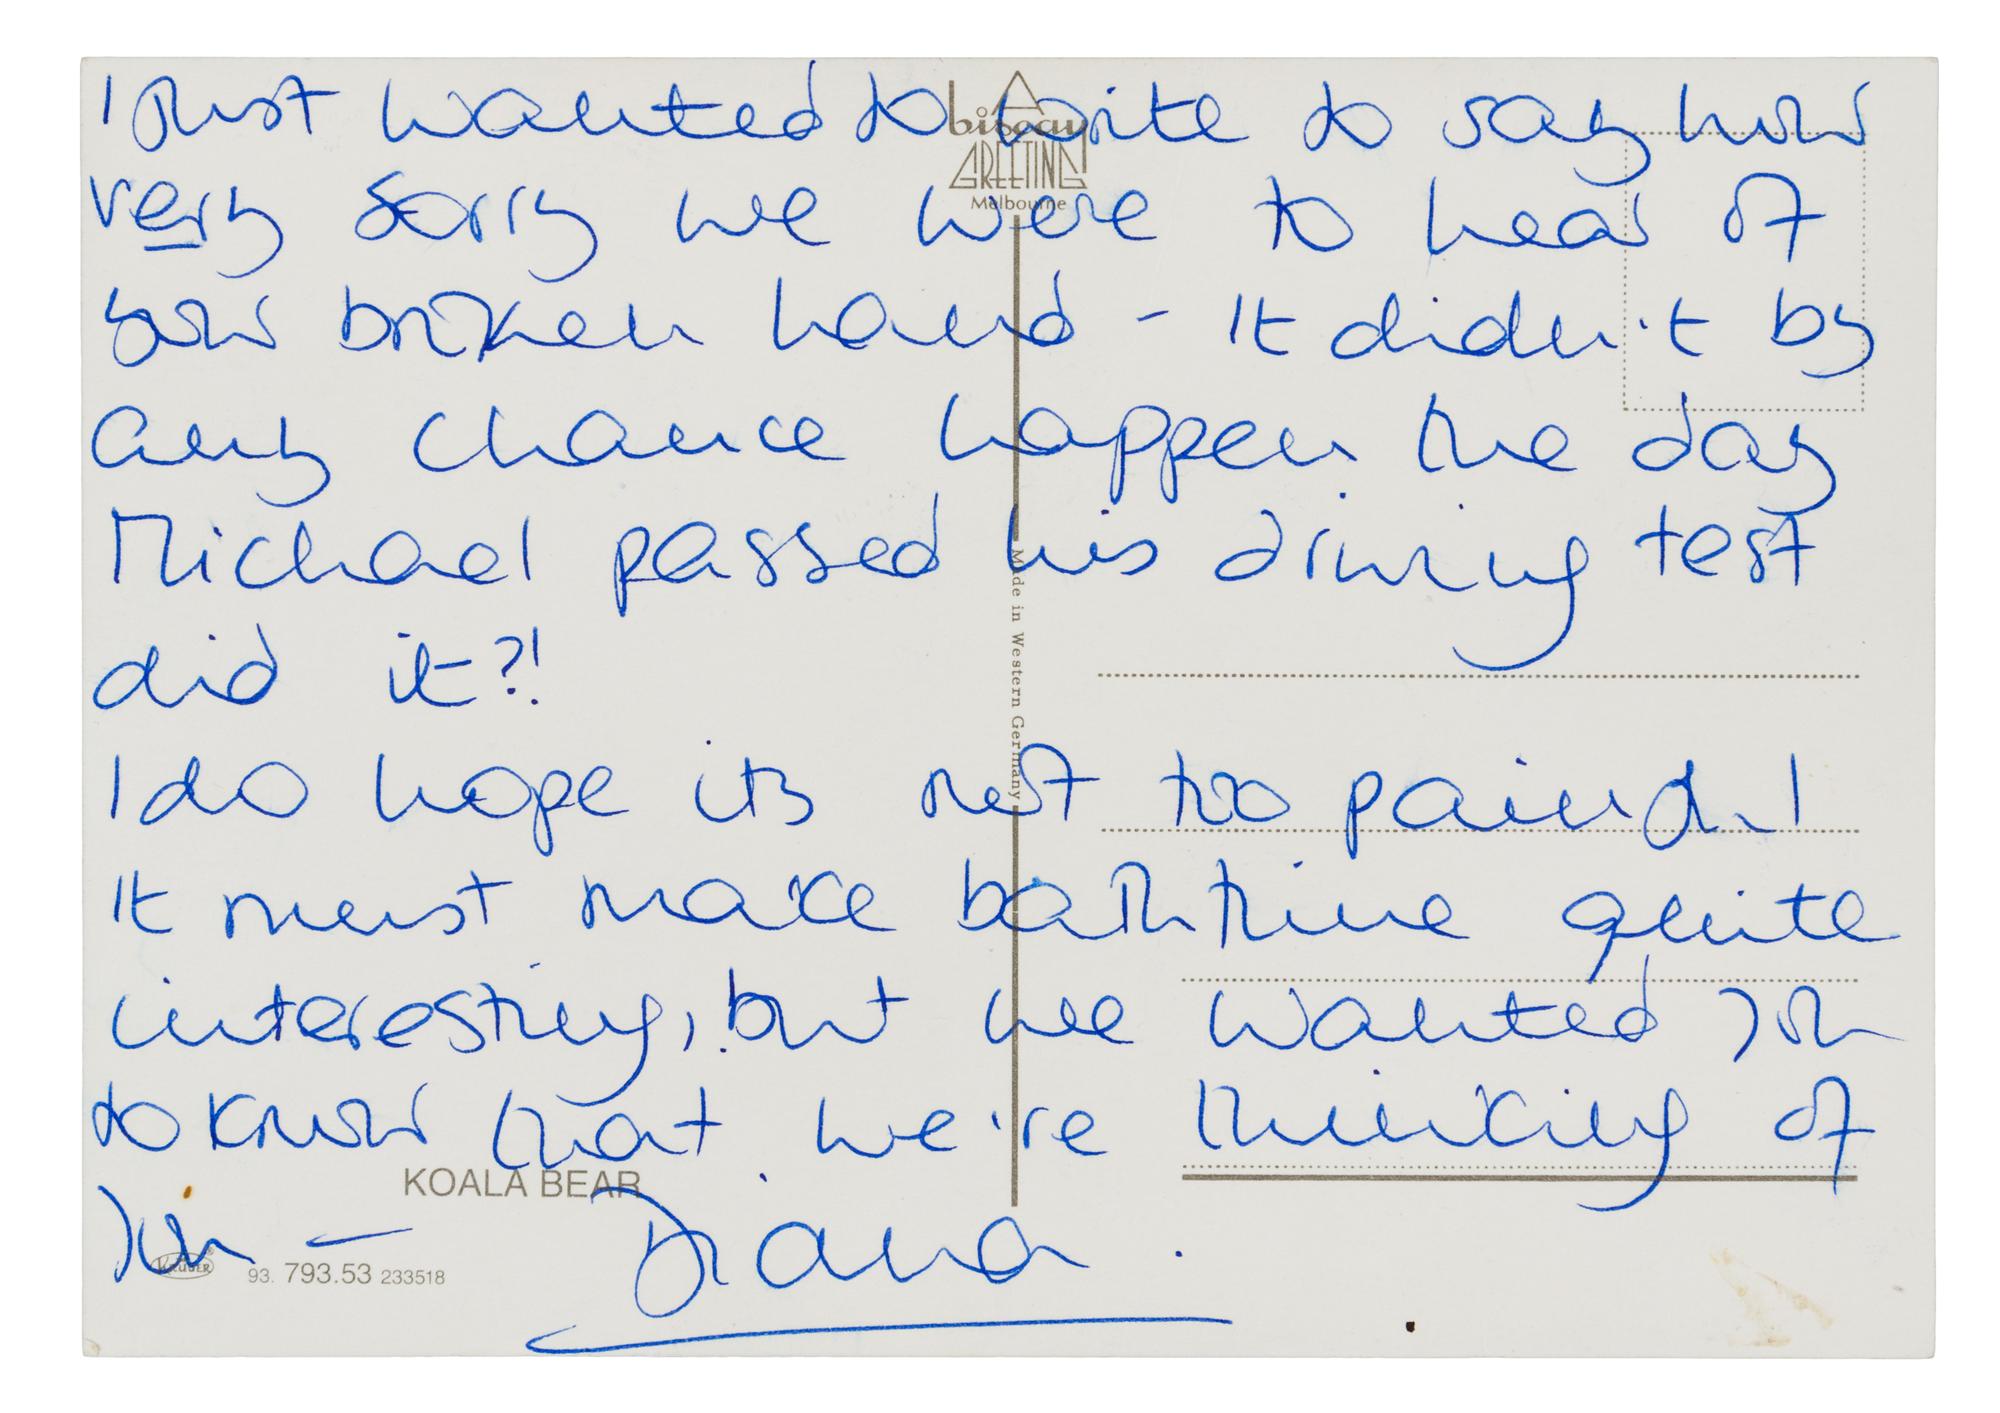 I just wanted to write to say how
very sorry we were to hear of
your broken hand - It didn't by
any chance happen the day
Michael passed his driving test
did it?!
I do hope its not too painful
It must make bath time quite
interesting, but we wanted you
to know that we're thinking of
you - Diana.
biscay
GREETING
Melbourne
Made in Western Germany
KOALA BEAR
KRÜGER
93. 793.53 233518